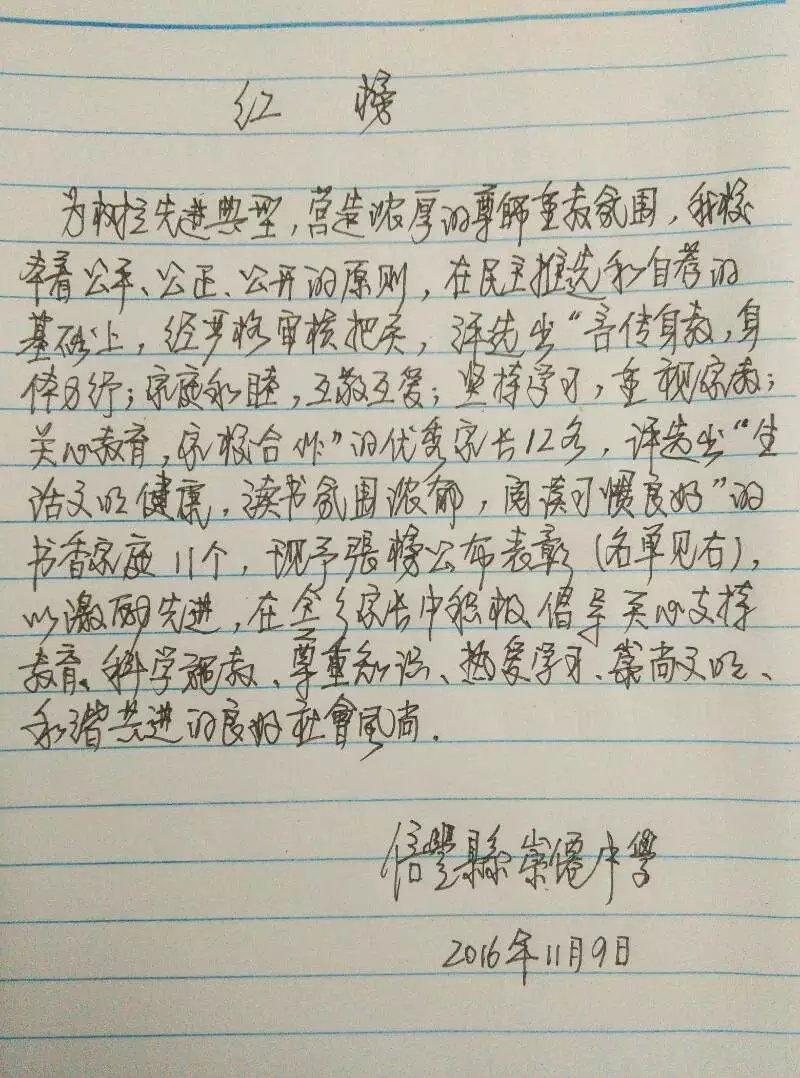 红 榜
为树立先进典型，营造浓厚的尊师重教氛围，我校
本着公平、公正、公开的原则，在民主推选和自荐的
基础上，经严格审核把关，评选出“言传身教，身
体力行；家庭和睦，互敬互爱；坚持学习，重视家教；
关心教育，家校合作”的优秀家长12名，评选出“生
活文明健康，读书氛围浓郁，阅读习惯良好”的
书香家庭11个，现予張榜公布表彰（名单见右），
以激励先进，在全乡家长中积极倡导关心支持
教育、科学施教、尊重知识、热爱学习、崇尚文明、
和谐共进的良好社會风尚.
信豐縣崇僊中學
2016年11月9日